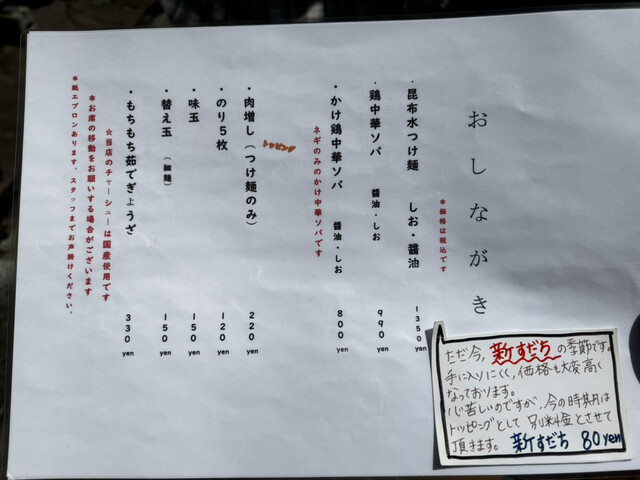 おしながき
＊価格は税込です
・昆布水つけ麺　しお・醤油　1350yen
・鶏中華ソバ　醤油・しお　990yen
・かけ鶏中華ソバ　醤油・しお　800yen
ネギのみのかけ中華ソバです
トッピング
・肉増し（つけ麺のみ）　220yen
・のり５枚　120yen
・味玉　150yen
・替え玉（細麺）　150yen
・もちもち茹でぎょうざ　330yen
☆当店のチャーシューは国産使用です
＊お席の移動をお願いする場合がございます
＊紙エプロンあります。スタッフまでお声掛けください。
ただ今、新すだちの季節です。
手に入りにくく、価格も大変高く
なっております。
心苦しいのですが、今の時期は
トッピングとして別料金とさせて
頂きます。新すだち 80yen